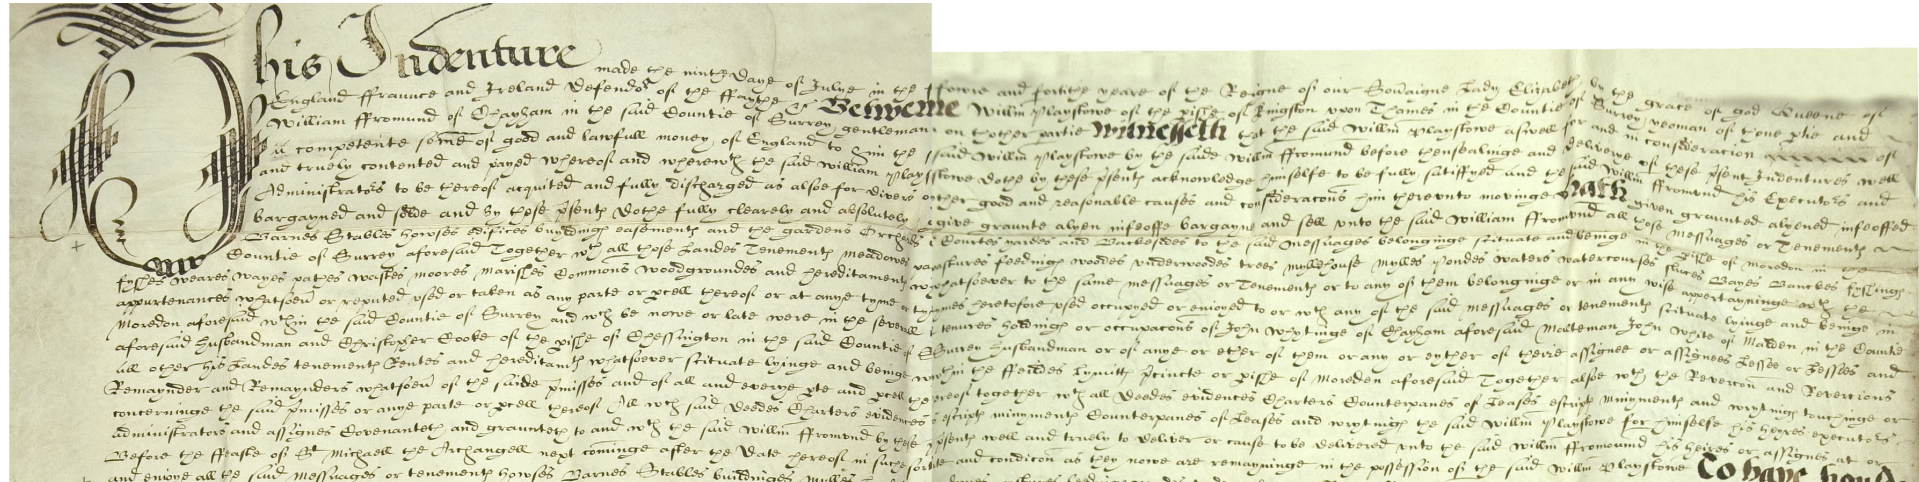 This Indenture made the ninthe daye of Julye in the fowre and fortithe yeare of the Reigne of our Soveraigne Lady Elizabeth by the grace of god Queene of
England ffraunce and Ireland Defendor of the ffaythe &c Betweene Willm Playstowe of the pishe of Kingston vpon Thames in the Countie of Surrey yeoman of thone ptie and
William ffromund of Chayham in the said Countie of Surrey gentleman on thother partie Witnesseth that the said Willm Playstowe aswell for and in consideracion of
a competente some of good and lawfull money of England to him the said Willm Playstowe by the saide Willm ffromund before thensealinge and deliverie of these psent Indentures well
and truely contented and payed whereof and wherewth the said William Playstowe dothe by these psents acknowledge himselfe to be fully satisfyed and the said Willm ffromund his Executors and
Administrators to be thereof acquited and fully discharged as alsoe for divers other good and reasonable causes and consideracons him therevnto movinge Hath given graunted alyened infeoffed
bargayned and solde and by these psents dothe fully clearely and absolutely give graunte alyen infeoffe bargayne and sell vnto the said William ffromund all those Messuages or Tenements
Barnes Stables howses edifices buyldings easements and the gardens Orchardes Courtes yardes and Backesides to the said Messuages belonginge scituate and beinge in the pishe of Moredon in the
Countie of Surrey aforesaid Together wth all those Landes Tenements meadowes pastures feedings woodes vnderwoodes trees Myllhouse Mylles Pondes waters watercourses sluces Bayes Banckes fyshings
fyshes weares wayes pathes wastes moores marishes Commons woodgroundes and hereditaments whatsoever to the same messuages or Tenements or to any of them belonginge or in any wise appertayninge wth the
appurtenances whatsoever or reputed vsed or taken as any parte or pcell thereof or at anye tyme or tymes heretofore vsed occupyed or enjoyed to or wth any of the said messuages or tenements scituate lyinge and beinge in
Moredon aforesaid wthin the said Countie of Surrey and wch be nowe or late were in the severall tenures holdings or occupacons of John Whytinge of Chayham aforesaid Malteman John White of Malden in the Countie
aforesaid husbandman and Christopher Cooke of the pishe of Chessington in the said Countie of Surrey husbandman or of anye or ether of them or any or eyther of theire assignee or assignees Lessee or Lessees and
all other his Landes tenements Rentes and hereditamts whatsoever scituate lyinge and beinge wthin the ffeildes Lymitts pcincte or pishe of Moreden aforesaid Together alsoe wth the Revercon and Revercions
Remaynder and Remaynders whatsoever of the saide pmisses and of all and everye pte and pcell thereof together wth all Deedes evidences Charters Counterpanes of Leases escripts mynyments and wrytings touchinge or
concerninge the said pmisses or anye parte or pcell thereof All wch said Deedes Charters evidences escripts minyments Counterpanes of Leases and wrytings the said Willm Playstowe for himselfe his heyres executors
administrators and assignes Covenanteth and graunteth to and wth the said Willm ffromund by these psents well and truely to deliver or cause to be delivered vnto the said Willm ffromound his heires or assignes at or
Before the ffeaste of St Michaell the Archangell next cominge after the Date hereof in suche sorte and condicon as they nowe are remayninge in the possession of the said Willm Playstowe To have hould
and enjoye all the said Messuages or tenements howses Barnes Stables buildinges Mylles